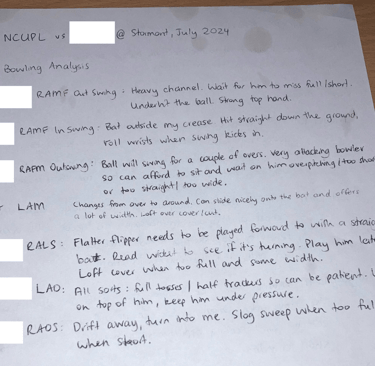 NCUPL vs @ Stormont, July 2024
Bowling Analysis
RAMF Out Swing - Heavy channel. Wait for him to miss full/short.
Underhit the ball. Strong top hand.
RAMF In Swing - Bat outside my crease. Hit straight down the ground,
roll wrists when swing kicks in.
RAFM Outswing: Ball will swing for a couple of overs. very attacking bowler
so can afford to sit and wait on him overpitching/too short
or too straight/ too wide.
LAM Changes from over to around. Can slide nicely onto the bat and offers
a lot of width. Loft over cover/cut.
RALS: Flatter flipper needs to be played forward to with a straight
bat. Read wicket to see if it's turning. Play him late
Loft cover when too full and some width.
LAO: All sorts: full tosses / half trackers so can be patient.
on top of him, keep him under pressure.
RAOS: Drift away, turn into me. Slog sweep when too full
when short.